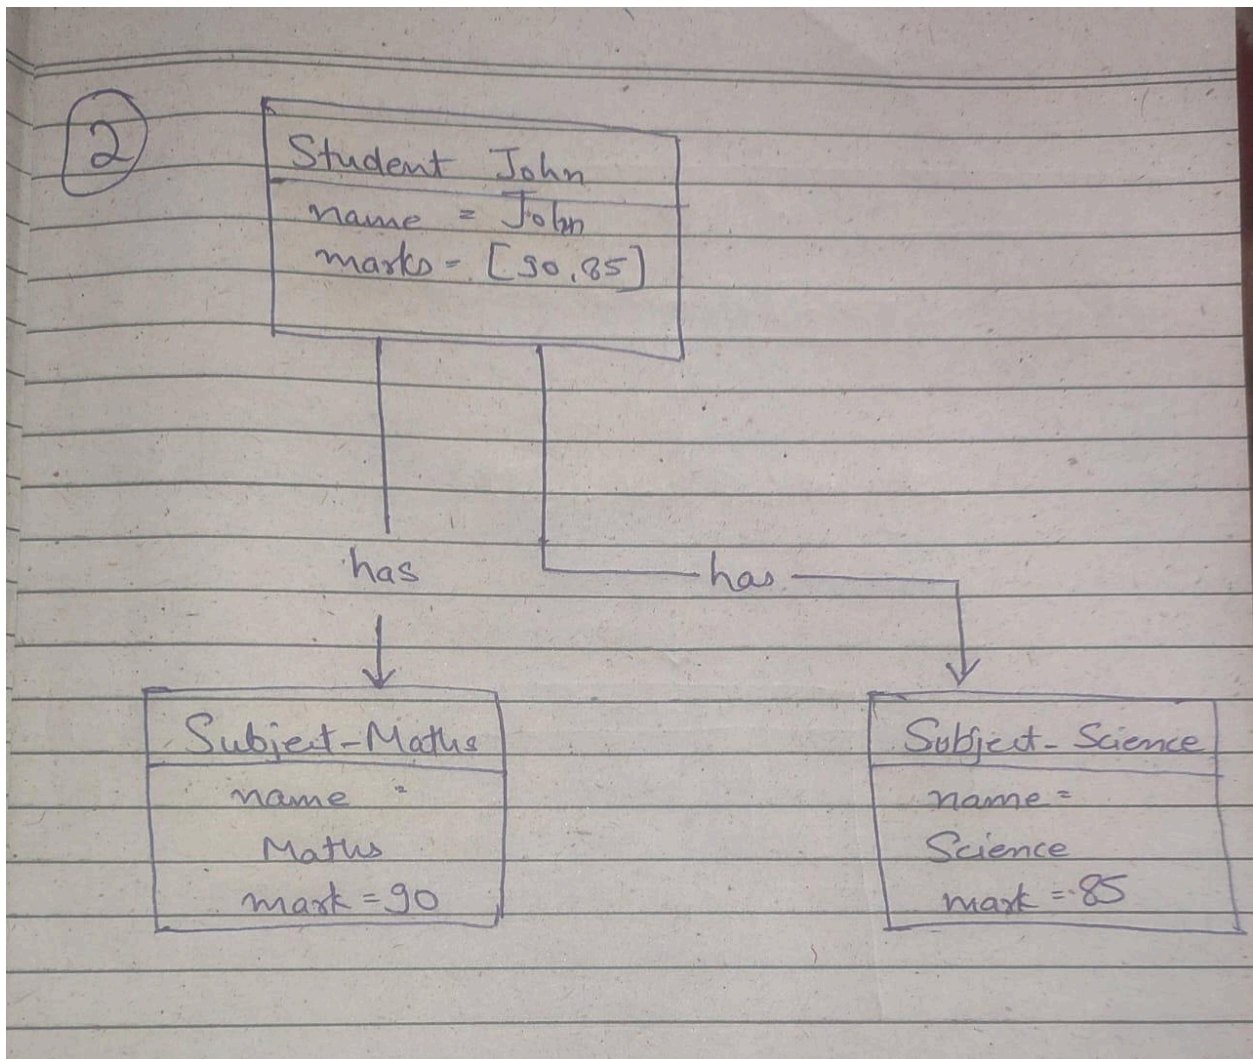 2
Student John
name = John
marks = [90,85]
has
has
Subject-Maths
name =
Maths
mark = 90
Subject-Science
name =
Science
mark = 85